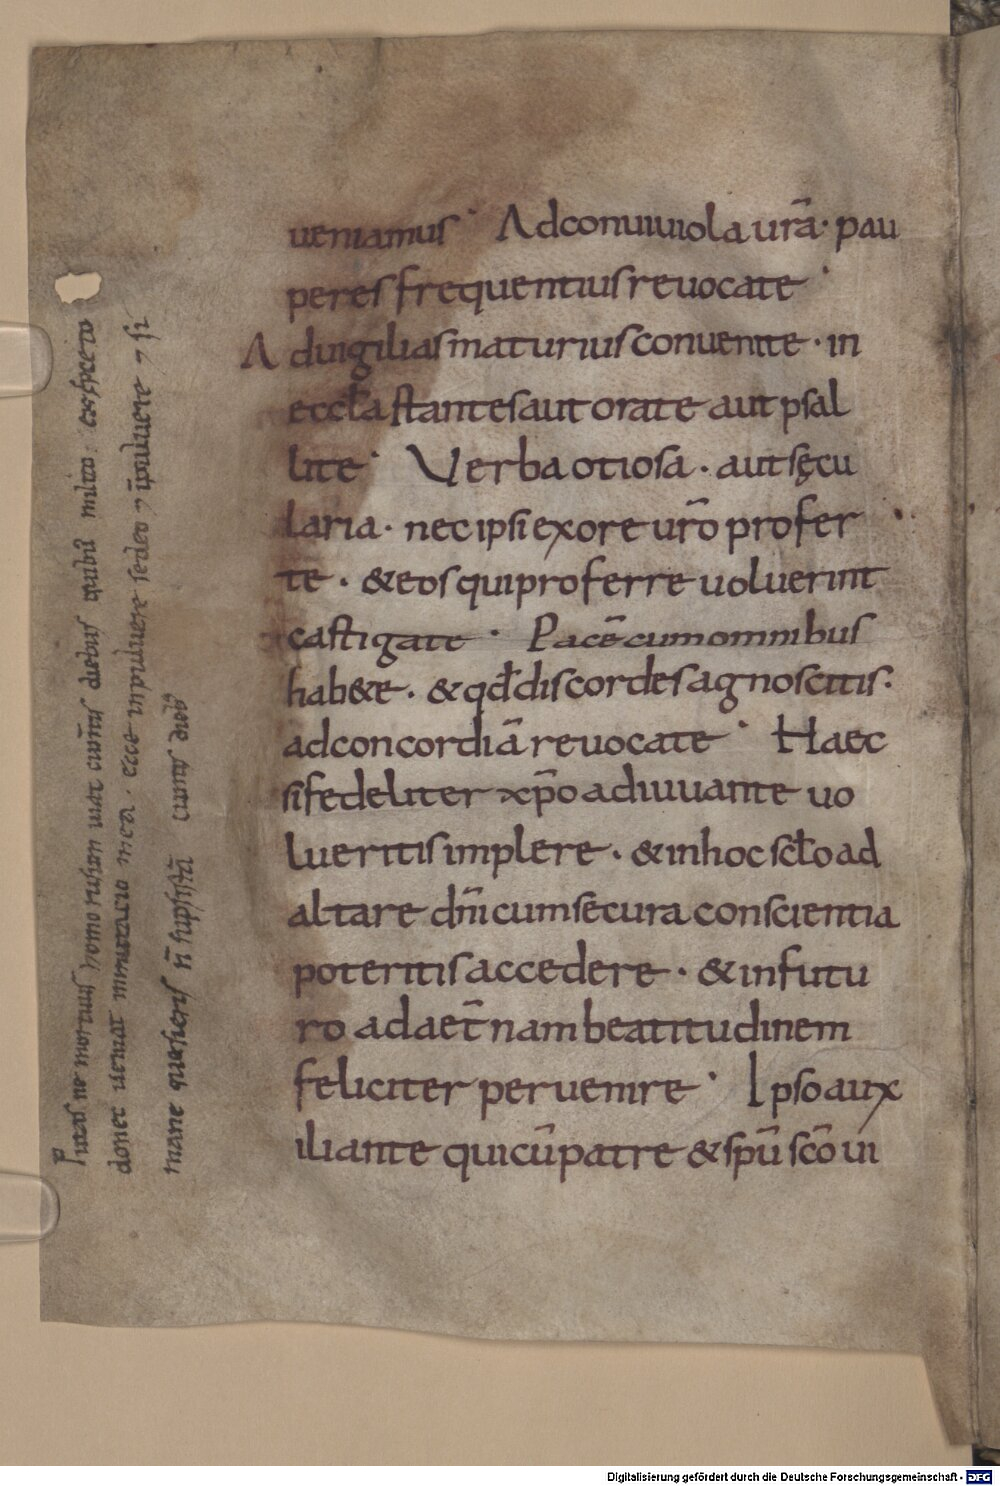 ueniamus· Adconuiuiola urā· pau
peres frequentius reuocate·
Aduigilias maturius conuenite· in
eccła stantes aut orate aut psal
lite· Verba otiosa· aut sęcu
laria· nec ipsi ex ore uro᷃ profer
te· &eos qui proferre uoluerint
castigate· Pacē cum omnibus
hab&e· &qđ discordes agnoscitis·
ad concordiā reuocate· Haec
si fedeliter xp̄o adiuuante uo
lueritis implere· &in hoc scło ad
altare dn̄i cum secura conscientia
poteritis accedere· &in futu
ro ad aet̄nam beatitudinem
feliciter peruenire· Ipso aux
iliante qui cū patre &spū sc̄o ui
Putas ne mortuus homo rusum uiat cun̄tis diebus quibū milito: exspecto
donec ueniat inmutacio mea· ecce inpuluere sedeo ⁊ ī puluere ⁊ si
mane quesieris n̄ supsistā cuntis dieb;